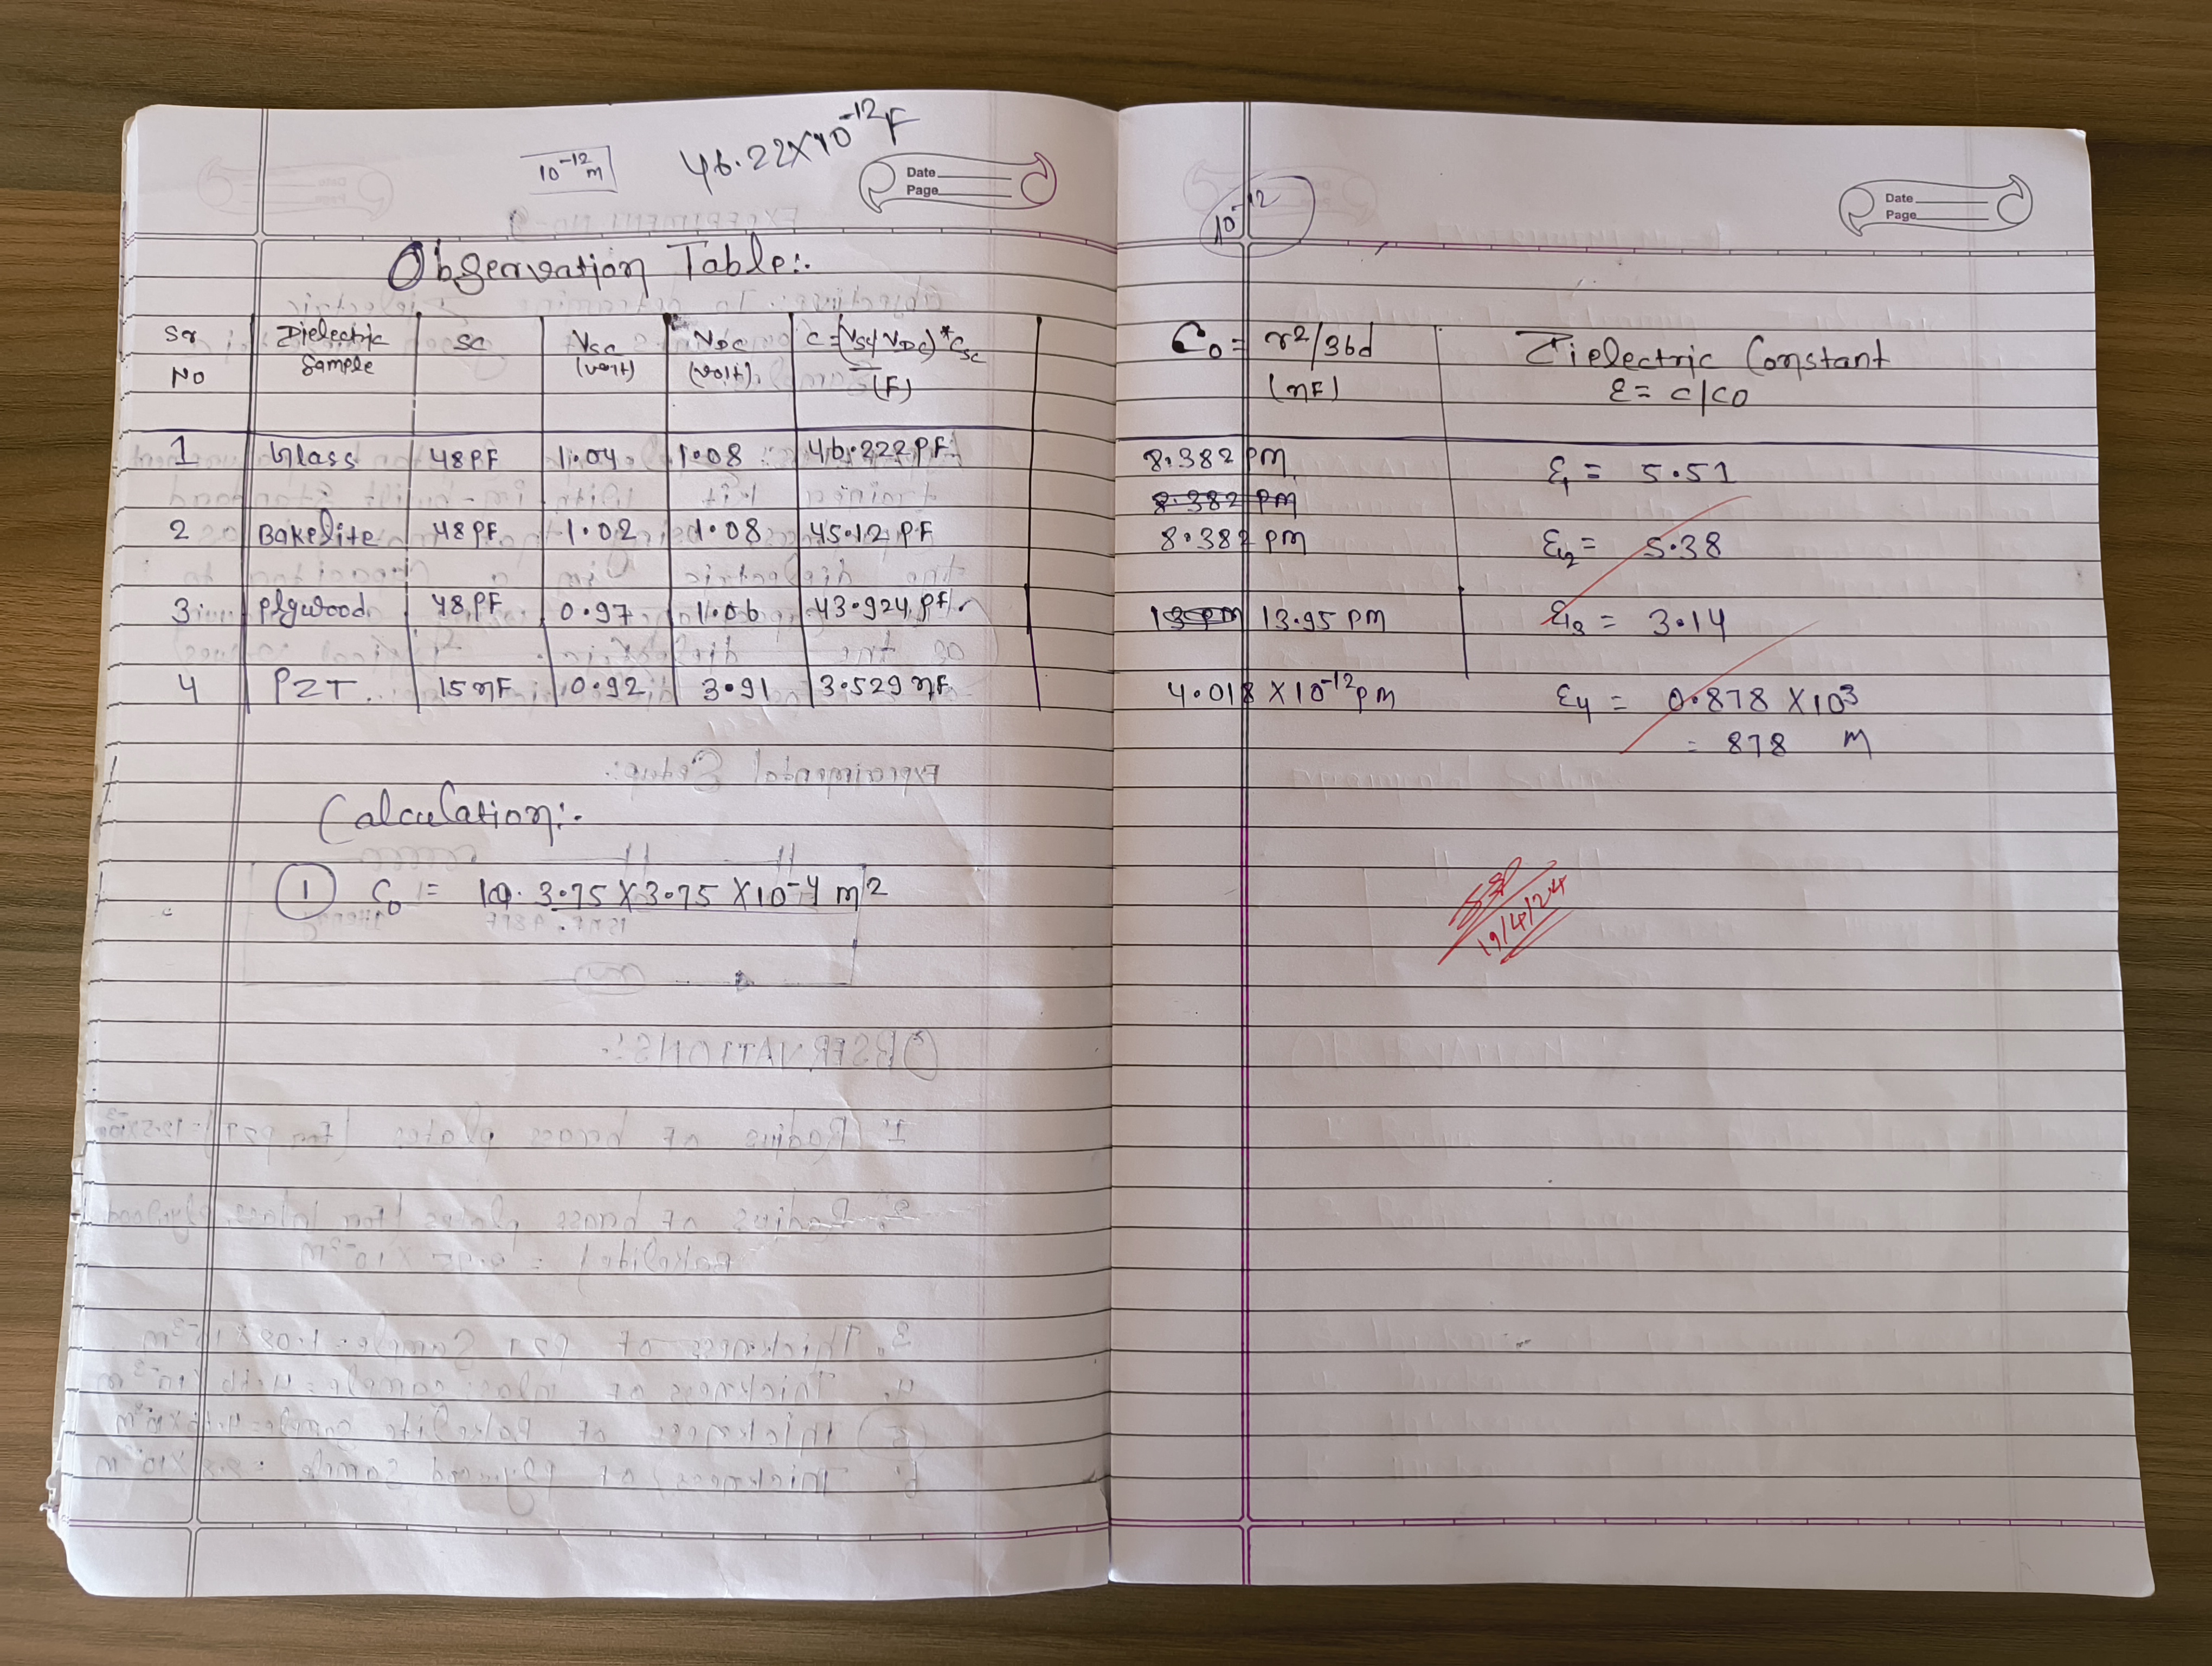 10⁻¹² m
46.22X10⁻¹²F
Date
Page
Observation Table:.
Sr No | Dielectric Sample | SC | VSC (volt) | VDC (volt) | C=(VSC/VDC)*CSC (F)
1 | Glass | 48PF | 1.04 | 1.08 | 46.222PF
2 | Bakelite | 48PF | 1.02 | 1.08 | 45.12 PF
3 | Plywood | 48 PF | 0.97 | 1.06 | 43.924 PF
4 | PZT | 15 nF | 0.92 | 3.91 | 3.529 nF
Calculation:-
1 C₀ = 3.75 X 3.75 X 10⁻⁴ m²
10⁻¹²
Date
Page
C₀ = r²/36d (nF) | Dielectric Constant ε = C/C0
8.382 pm | ε₁ = 5.51
8.382 pm
8.382 pm | ε₂ = 5.38
13pm 13.95 pm | ε₃ = 3.14
4.018 X 10⁻¹² pm | ε₄ = 0.878 X 10³
= 878 m
19/4/24